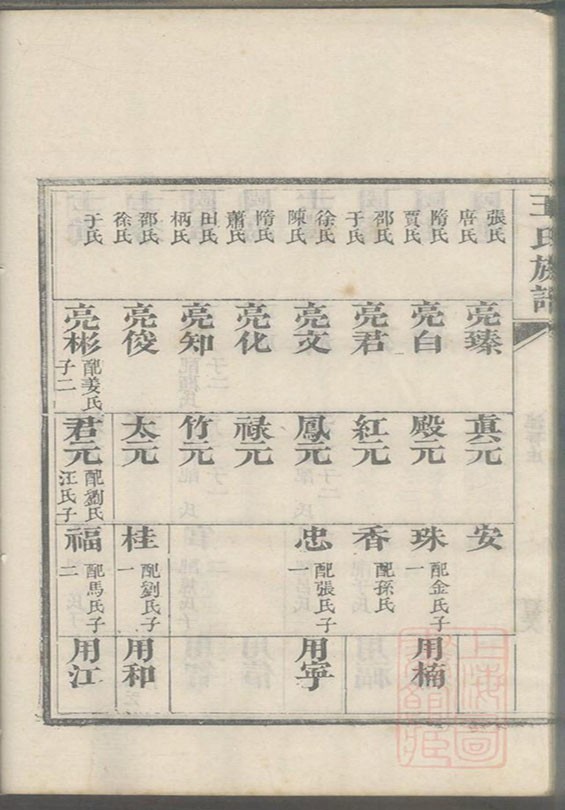 王氏族譜
張氏
唐氏
隋氏
賈氏
邵氏
于氏
徐氏
陳氏
隋氏
蕭氏
田氏
柄氏
邵氏
徐氏
于氏
亮臻
亮白
亮君
亮文
亮化
亮知
亮俊
亮彬 配姜氏
子二
真元
殿元
紅元
鳳元
祿元
竹元
太元
君元 配劉氏
汪氏子
安
珠 配金氏子
一
香 配孫氏
忠 配張氏子
一
桂 配劉氏子
一
福 配馬氏子
二
用楠
用寧
用和
用江